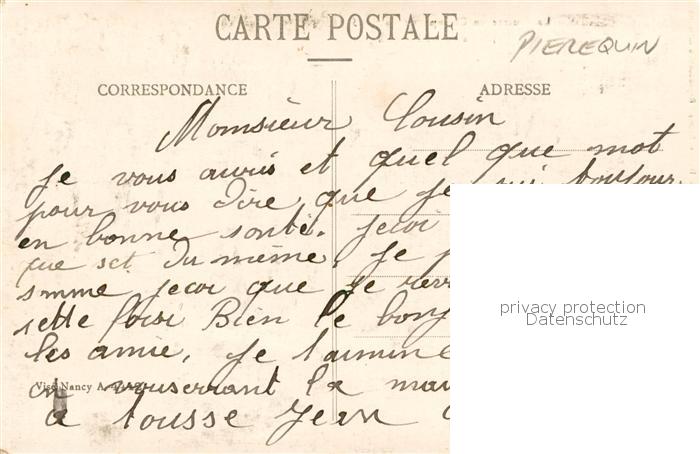 CARTE POSTALE
PIEREQUIN
CORRESPONDANCE
ADRESSE
Monsieur Cousin
Je vous auris et quel que mot
pour vous dire que je sui toujour
en bonne sonté. jecoi
que set du même. Je
smme jecoi que je
sette foisi Bien le
les amie, Je
en vouserrant la
a tousse Jean
privacy protection
Datenschutz
Visé Nancy